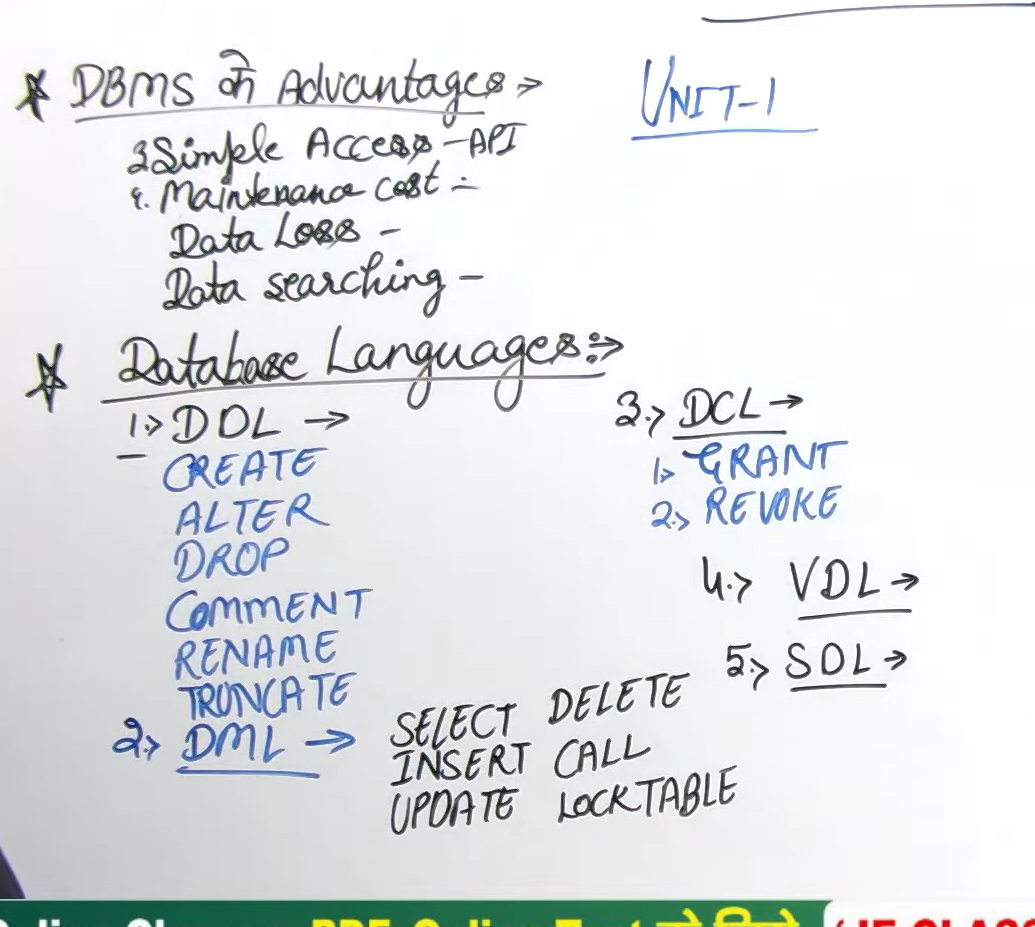 UNIT-1
* DBMS के Advantages →
3 Simple Access - API
4. Maintenance cost :-
Data Loss -
Data searching -
* Database Languages :→
1.> DDL →
CREATE
ALTER
DROP
COMMENT
RENAME
TRUNCATE
2.> DML →
SELECT DELETE
INSERT CALL
UPDATE LOCKTABLE
3.> DCL →
1.> GRANT
2.> REVOKE
4.> VDL →
5.> SDL →